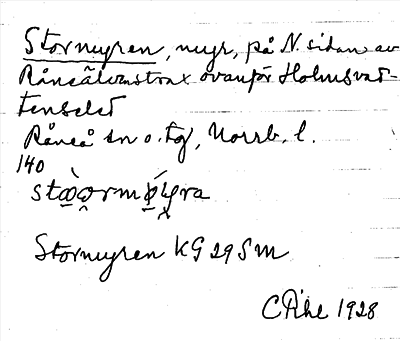 Stormyren, myr, på N. sidan av
Råneälven strax ovanför Holmsvat-
tenselet
Råneå sn o. tg, Norrb. l.
140
Stormyren KG 29 SM
C Pihl 1928